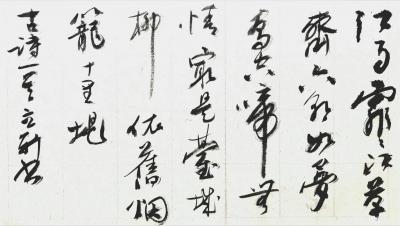 江雨霏霏江草
齊六朝如夢
鳥空啼無
情最是臺城
柳依舊烟
籠十里堤
古詩一首立新書